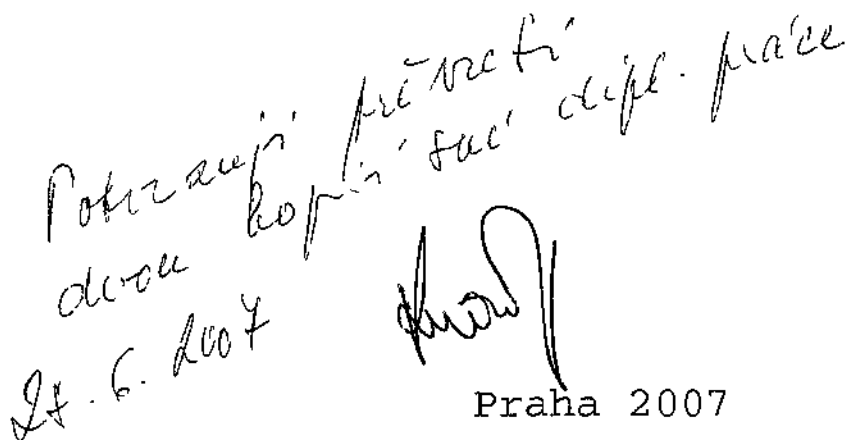 Potvrzuji převzetí
dvou kopií své dipl. práce
27.6.2007
Praha 2007